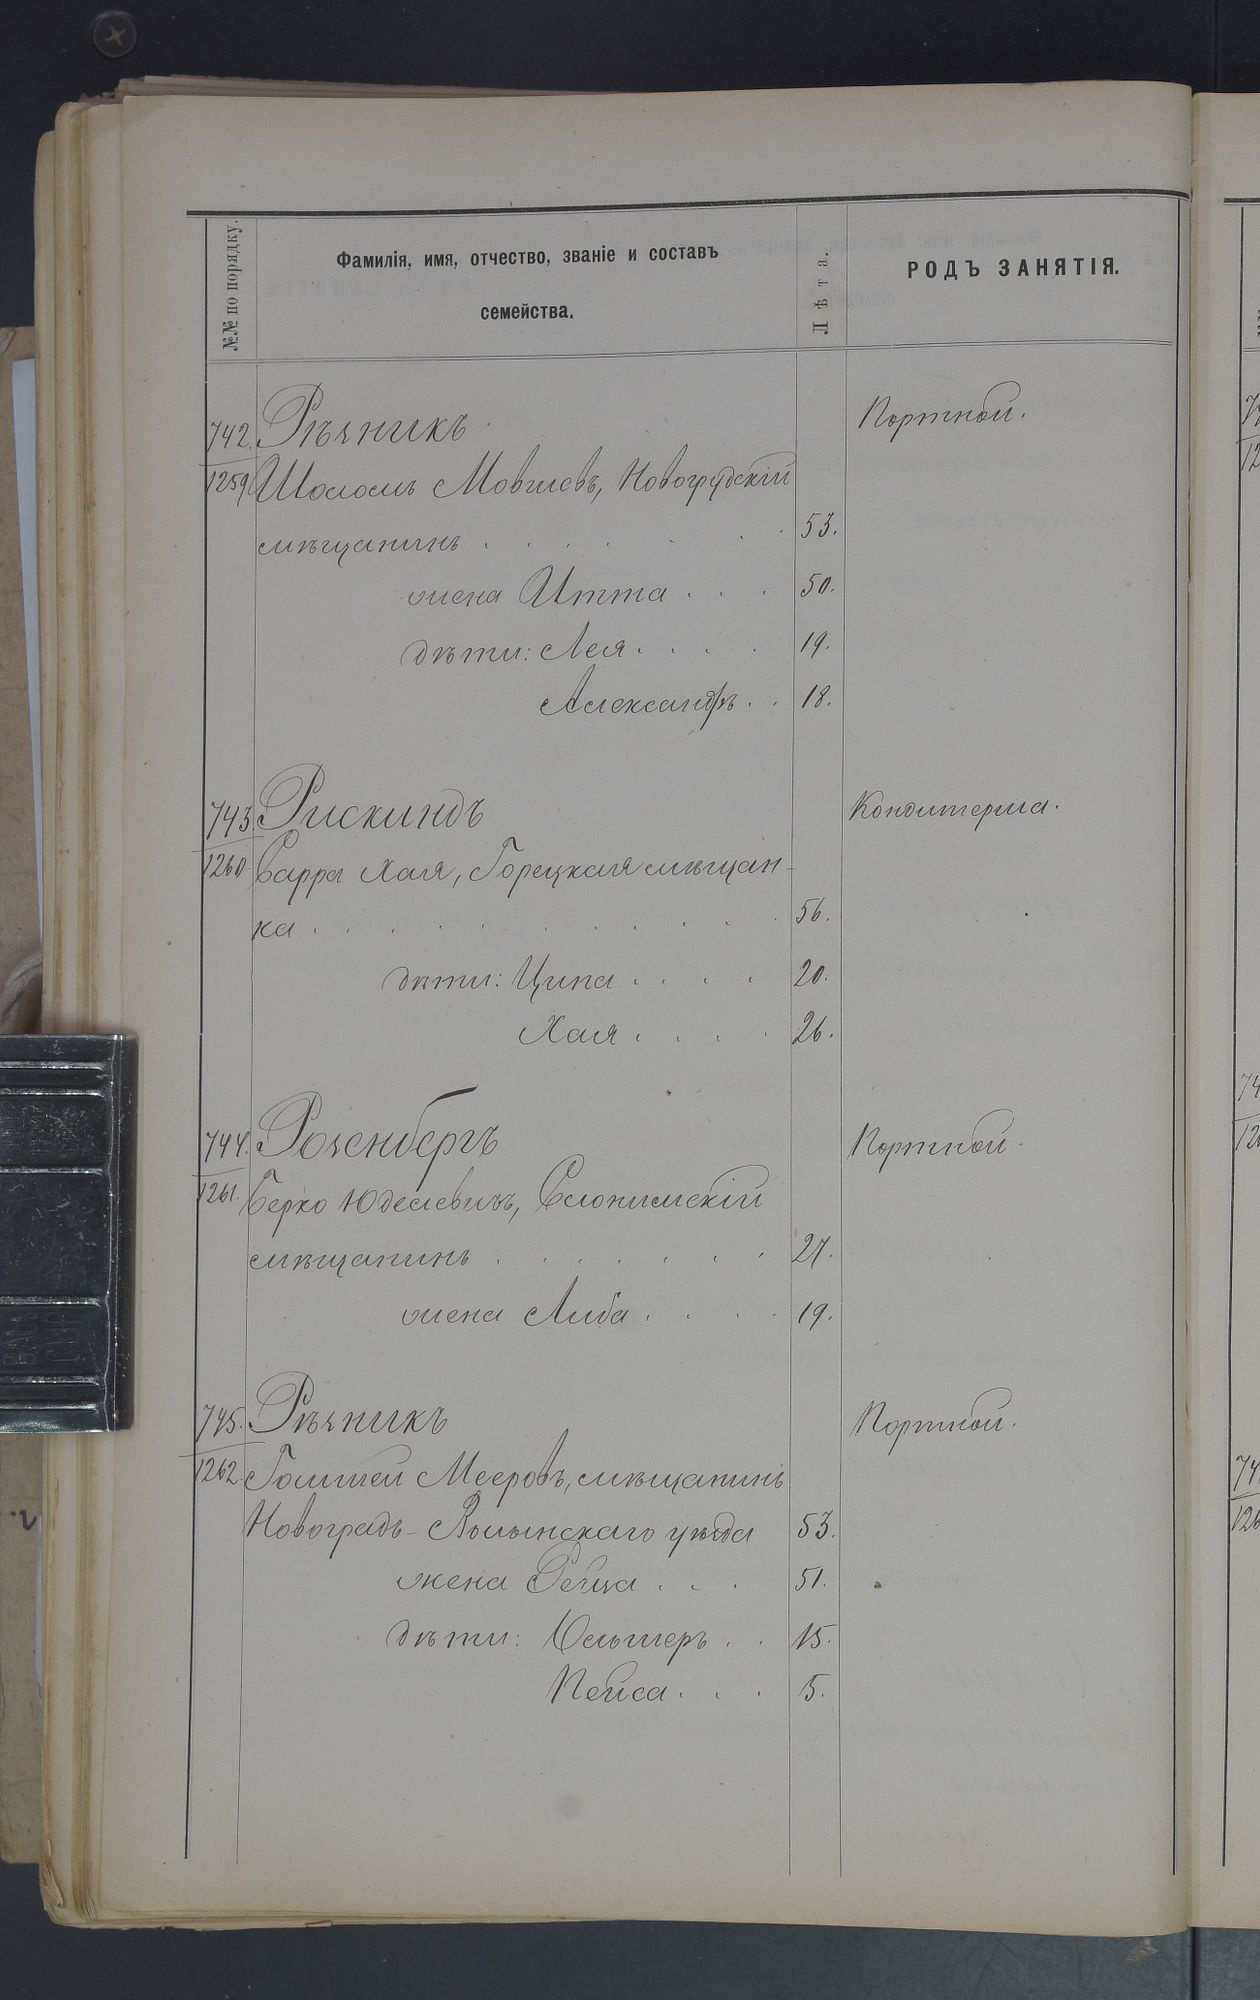 №№ по порядку.
Фамилія, имя, отчество, званіе и составъ
семейства.
Лѣта.
РОДЪ ЗАНЯТІЯ.
742. Рѣчникъ Портной.
1259 Шоломъ Мовшевъ, Новогрудскій
мѣщанинъ . . . . . . 53.
жена Итта . . . 50.
дѣти: Лея . . . . 19.
Александръ . . 18.
743. Рискиндъ Кондитерша.
1260 Сарра Хая, Горецкая мѣщан-
ка . . . . . . . . . . 56.
дѣти: Ципа . . . . 20.
Хая . . . . 26.
744. Розенбергъ Портной.
1261. Берко Юделевичъ, Слонимскій
мѣщанинъ . . . . . . . 27.
жена Либа . . . . 19.
745. Рѣчникъ Портной.
1262. Мееровъ, мѣщанинъ
Новоградъ-Волынскаго уѣзда 53.
жена Рейза . . . 51.
дѣти: . . 15.
Пейса . . . 5.